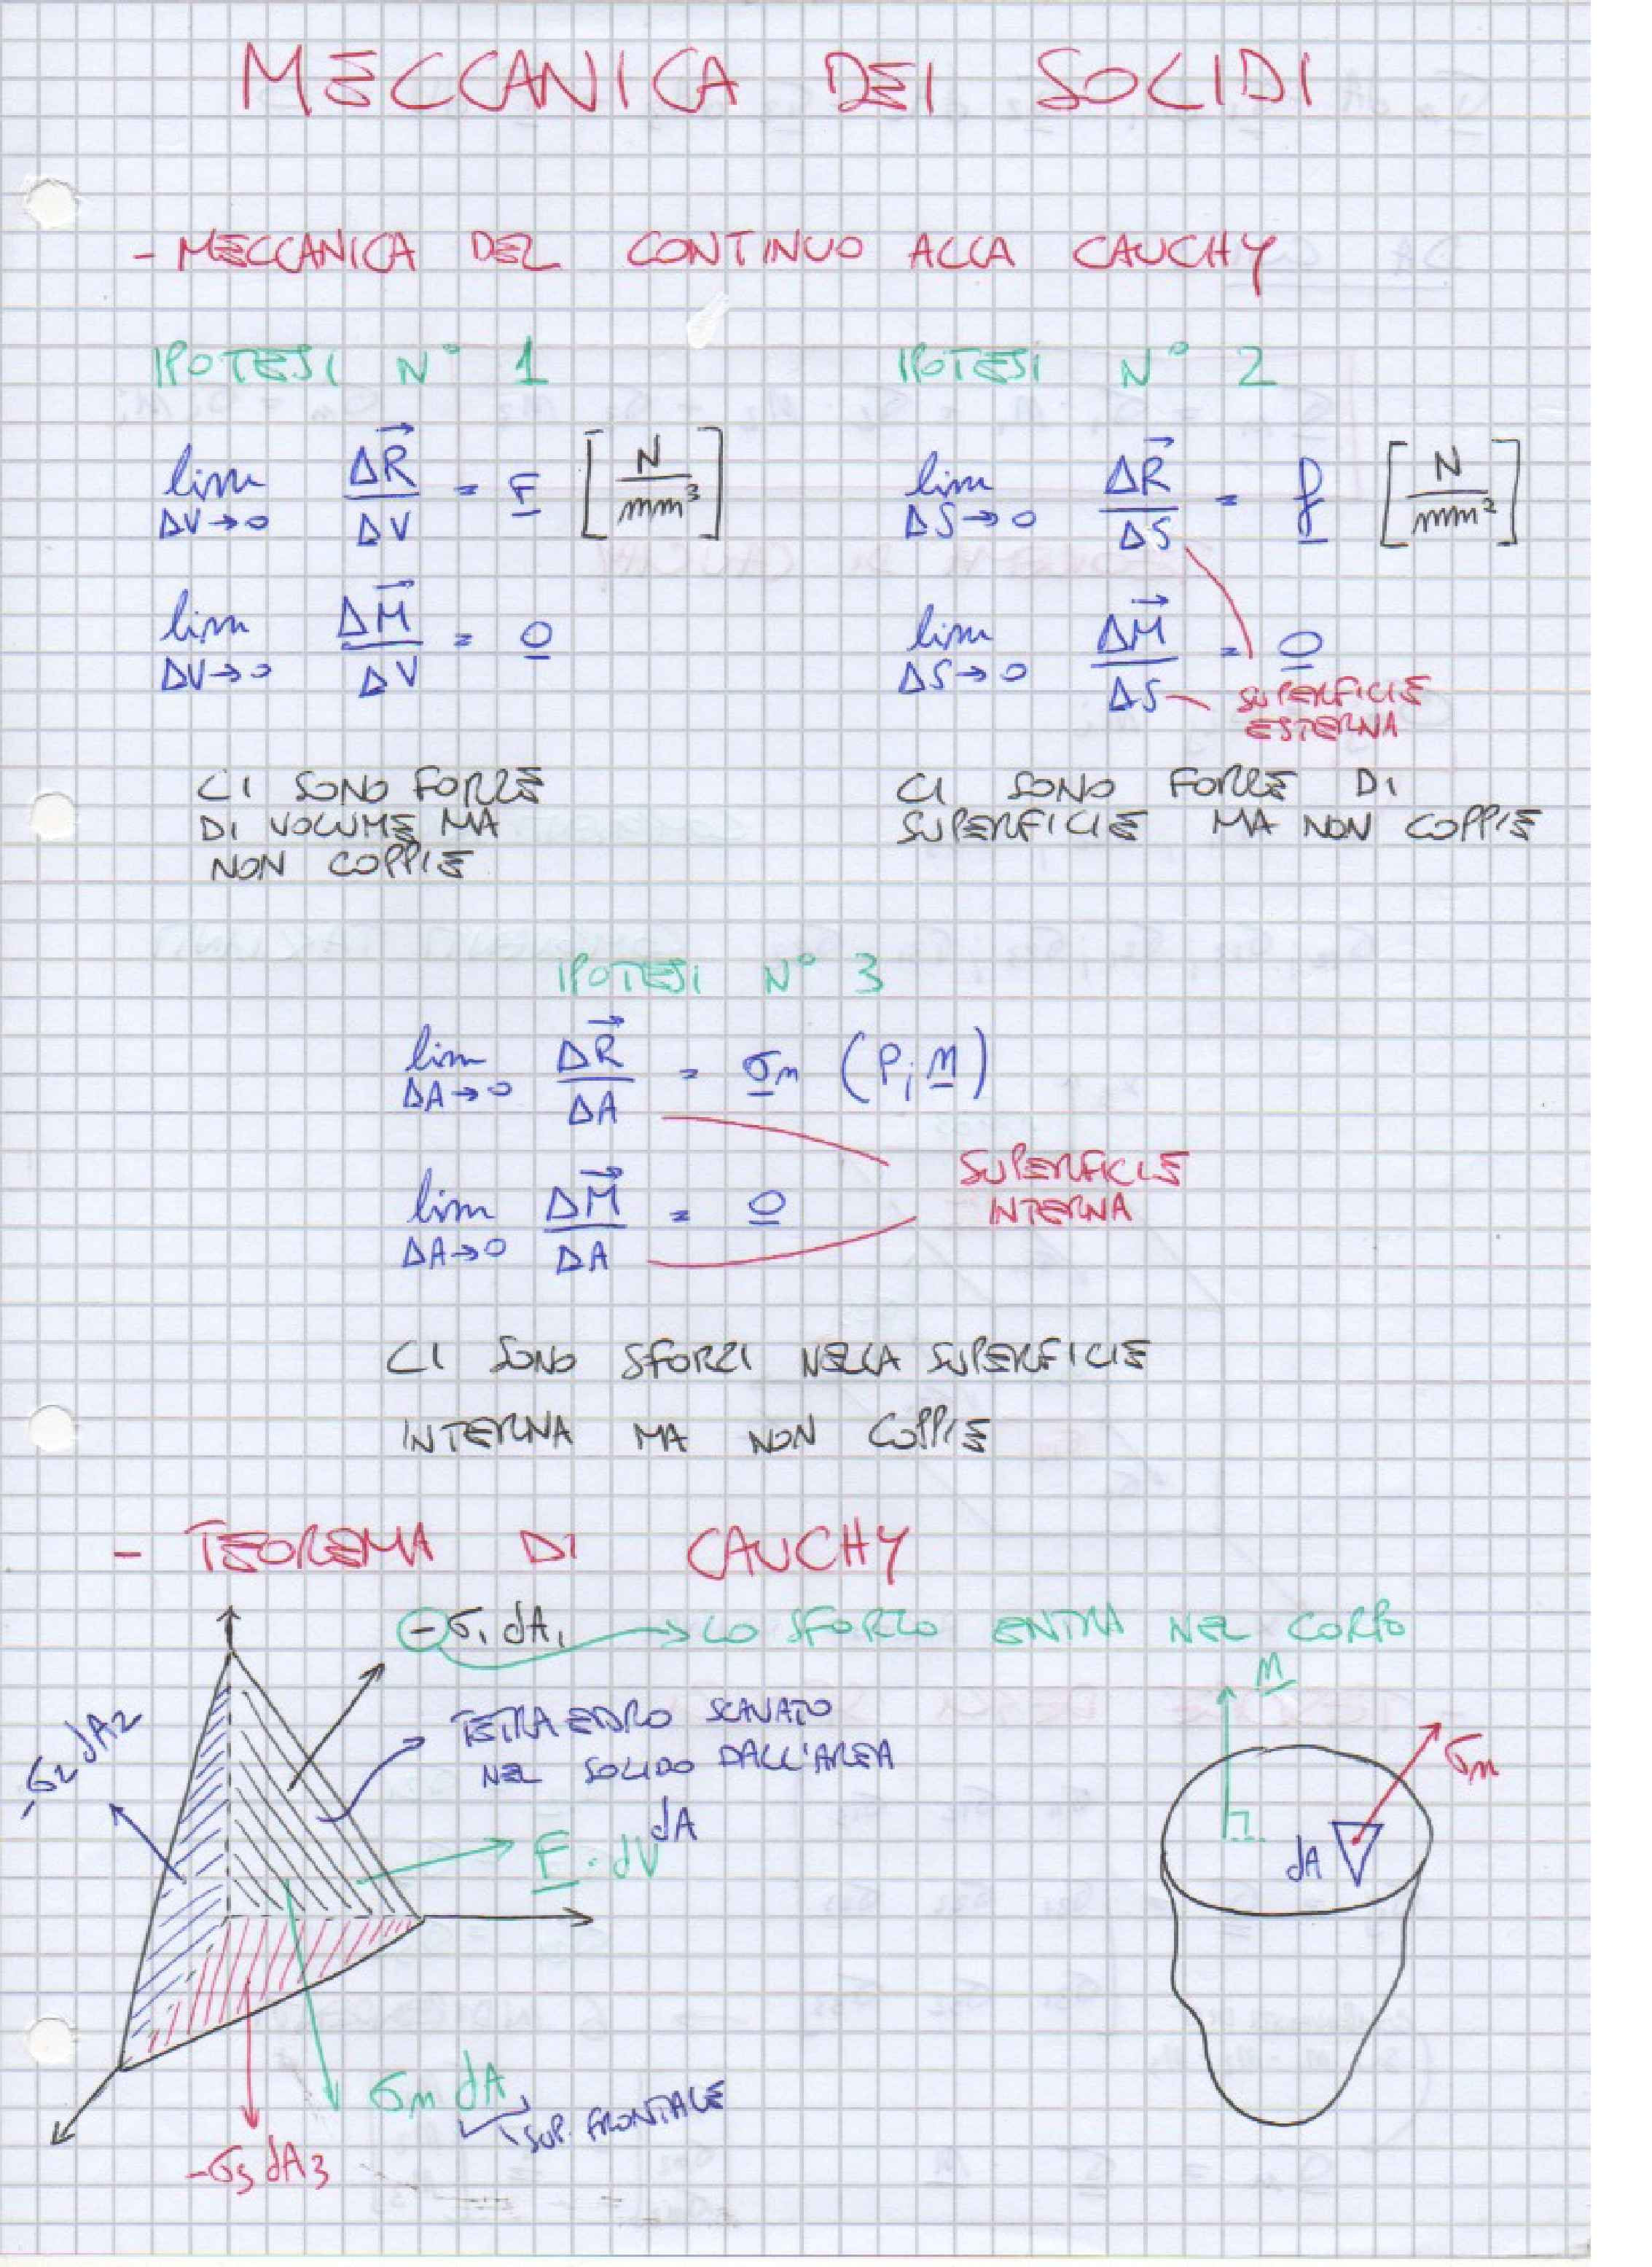 MECCANICA DEI SOLIDI
- MECCANICA DEL CONTINUO ALLA CAUCHY
IPOTESI N° 1
lim ΔV→0 ΔR⃗/ΔV = F [N/mm³]
lim ΔV→0 ΔM⃗/ΔV = 0
CI SONO FORZE
DI VOLUME MA
NON COPPIE
IPOTESI N° 2
lim ΔS→0 ΔR⃗/ΔS = f [N/mm²]
lim ΔS→0 ΔM⃗/ΔS = 0
SUPERFICIE
ESTERNA
CI SONO FORZE DI
SUPERFICIE MA NON COPPIE
IPOTESI N° 3
lim ΔA→0 ΔR⃗/ΔA = σn (P; n)
lim ΔA→0 ΔM⃗/ΔA = 0
SUPERFICIE
INTERNA
CI SONO SFORZI NELLA SUPERFICIE
INTERNA MA NON COPPIE
- TEOREMA DI CAUCHY
-σ1 dA1 → LO SFORZO ENTRA NEL CORPO
-σ2 dA2
TETRAEDRO SCAVATO
NEL SOLIDO DALL'AREA
dA
F · dV
σn dA
SUP. FRONTALE
-σ3 dA3
n
σn
dA